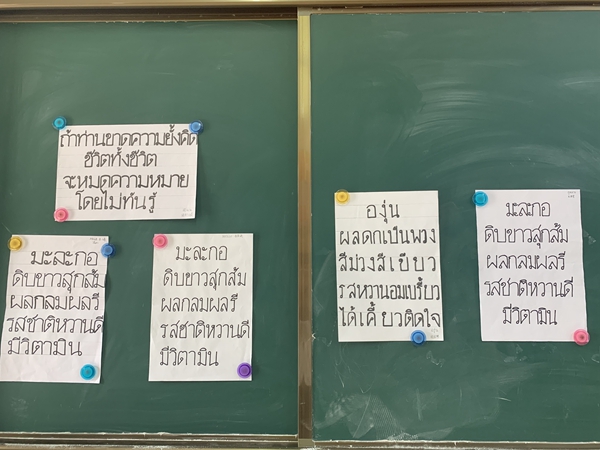 ถ้าท่านขาดความยั้งคิด
ชีวิตทั้งชีวิต
จะหมดความหมาย
โดยไม่ทันรู้
มะละกอ
ดิบขาวสุกส้ม
ผลกลมผลรี
รสชาติหวานดี
มีวิตามิน
มะละกอ
ดิบขาวสุกส้ม
ผลกลมผลรี
รสชาติหวานดี
มีวิตามิน
องุ่น
ผลดกเป็นพวง
สีม่วงสีเขียว
รสหวานอมเปรี้ยว
ได้เคี้ยวติดใจ
มะละกอ
ดิบขาวสุกส้ม
ผลกลมผลรี
รสชาติหวานดี
มีวิตามิน